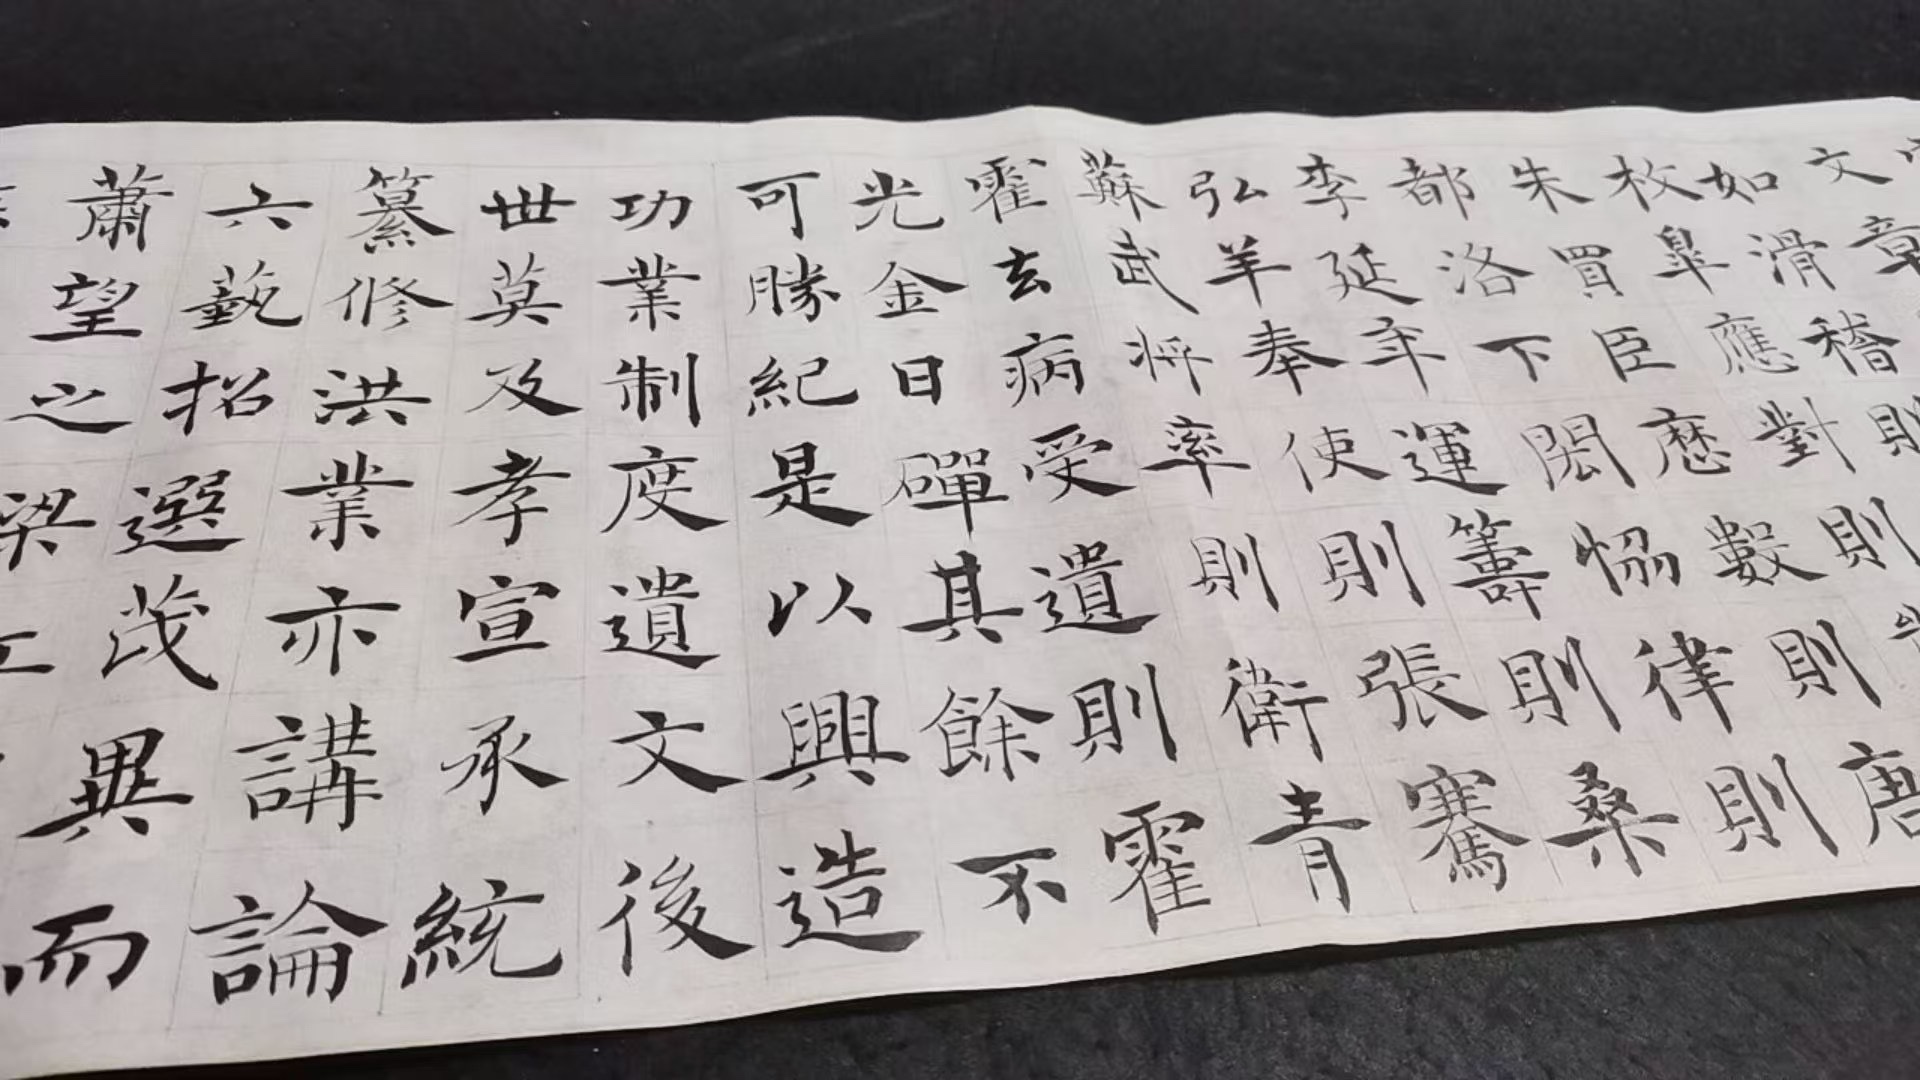 文章
如滑稽則
枚皋應對則
朱買臣曆數則唐
都洛下閎恊律則
李延年運籌則桑
弘羊奉使則張騫
蘇武將率則衛青
霍去病受遺則霍
光金日磾其餘不
可勝紀是以興造
功業制度遺文後
世莫及孝宣承統
纂修洪業亦講論
六藝招選茂異而
蕭望之梁